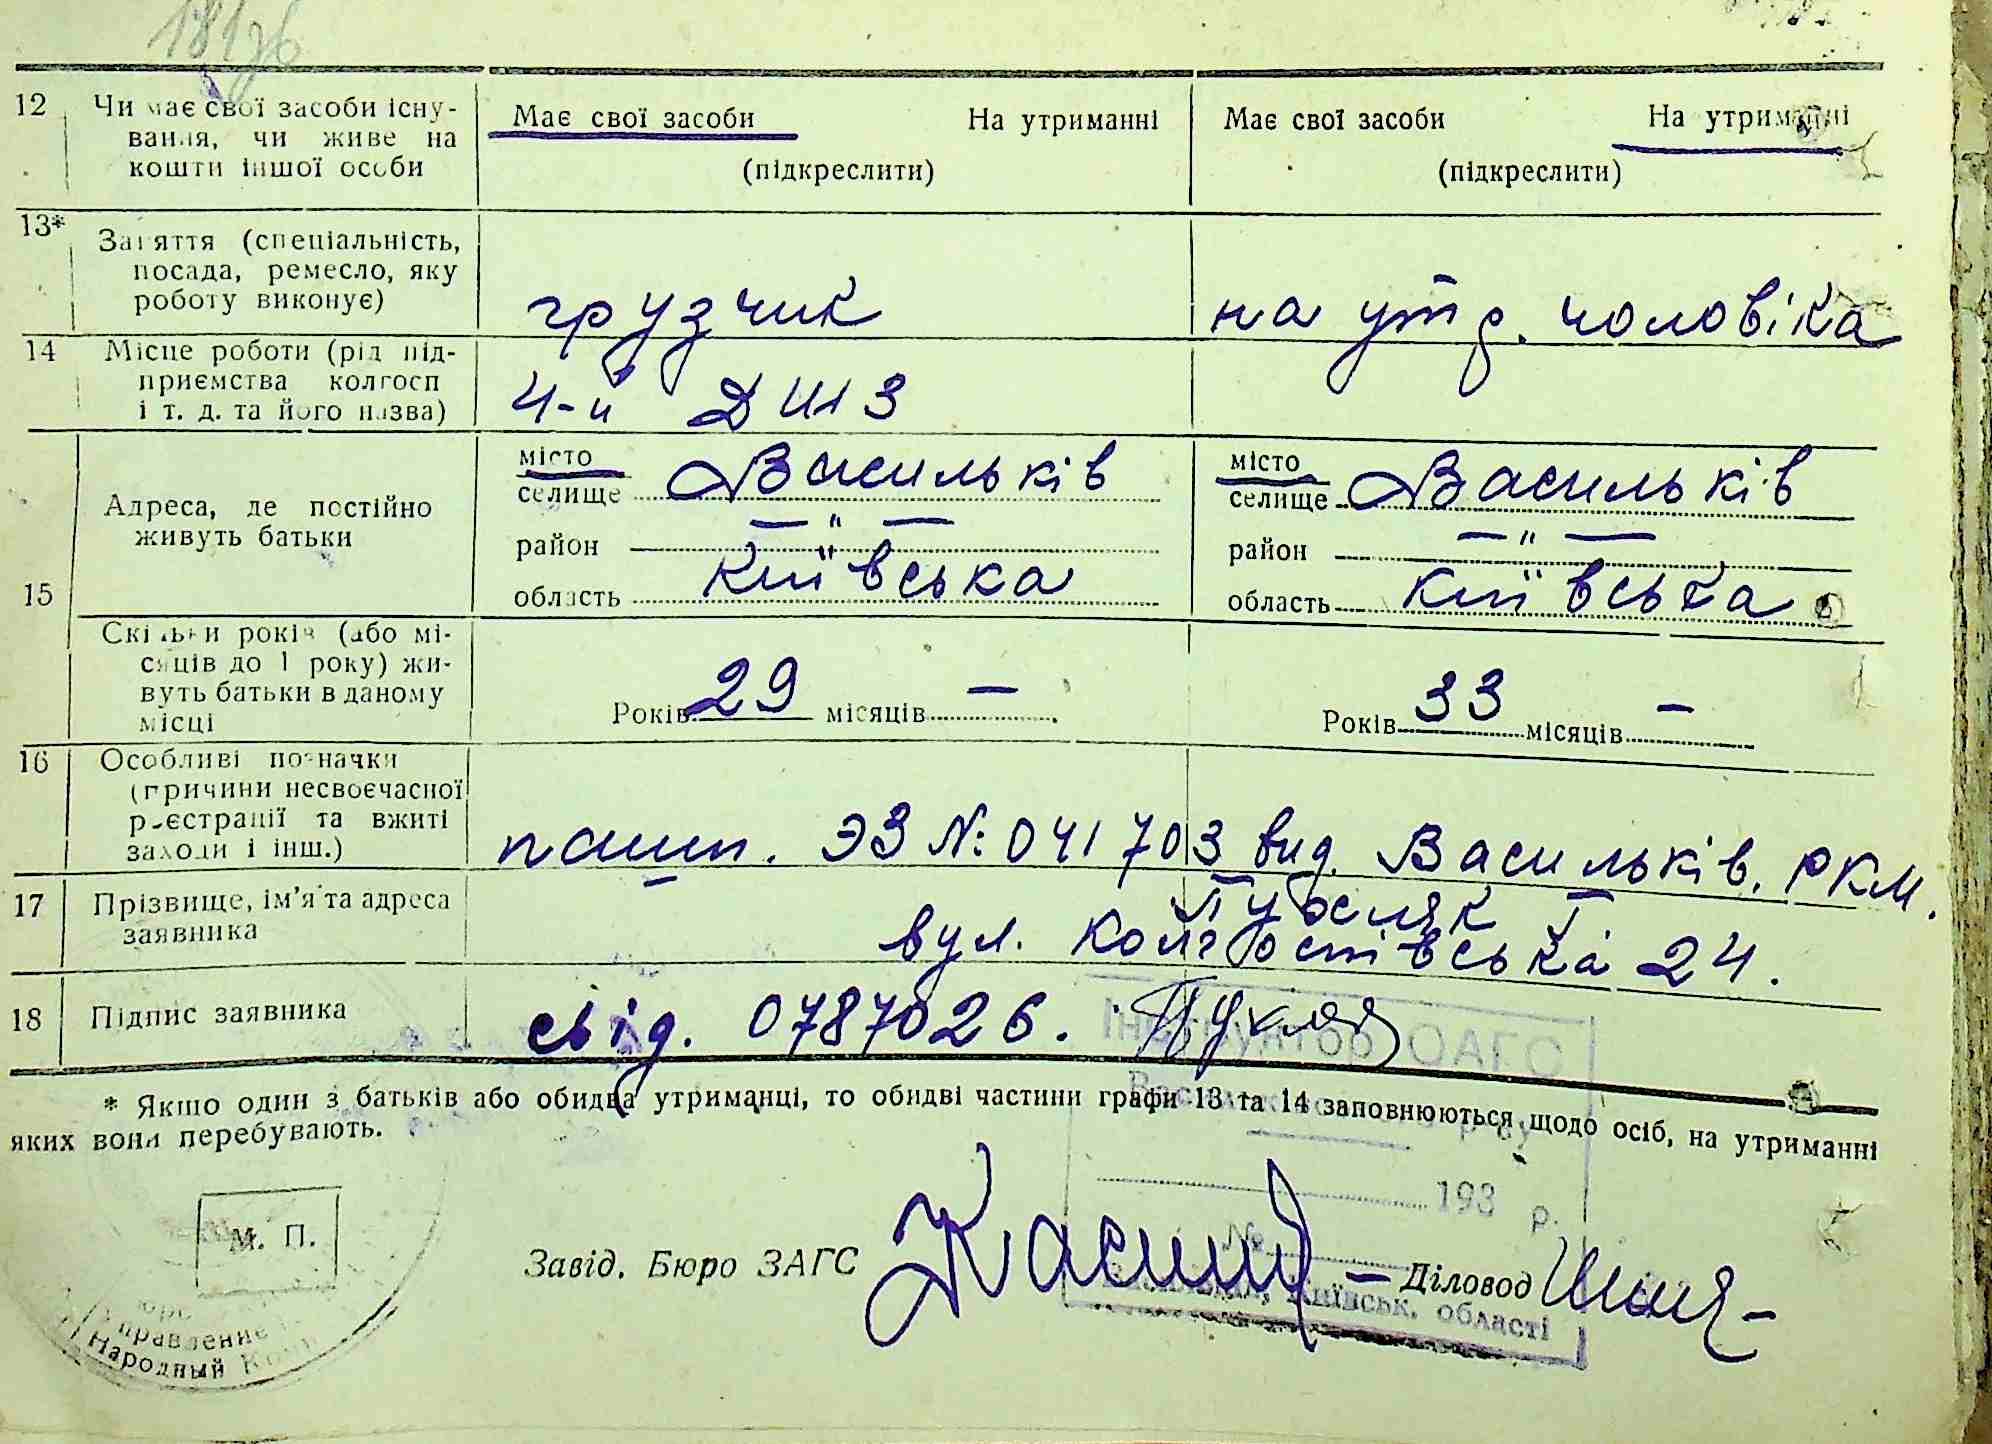 12 Чи має свої засоби існу-
вання, чи живе на
кошти іншої особи
Має свої засоби На утриманні
(підкреслити)
Має свої засоби На утриманні
(підкреслити)
13* Заняття (спеціальність,
посада, ремесло, яку
роботу виконує)
грузчик
на утр. чоловіка
14 Місце роботи (рід під-
приємства колгосп
і т. д. та його назва)
4-й ДШЗ
15
Адреса, де постійно
живуть батьки
місто
селище Васильків
район — " —
область Київська
місто
селище Васильків
район — " —
область Київська
Скільки років (або мі-
сяців до 1 року) жи-
вуть батьки в даному
місці
Років 29 місяців —
Років 33 місяців —
16 Особливі позначки
(причини несвоєчасної
реєстрації та вжиті
заходи і інш.)
пашп. ЭЗ №: 041703 вид. Васильків. РКМ.
17 Прізвище, ім'я та адреса
заявника
вул. Колгоспівська 24.
18 Підпис заявника
свід. 0787026.
Інспектор ОАГС
* Якщо один з батьків або обидва утриманці, то обидві частини графи 13 та 14 заповнюються щодо осіб, на утриманні
яких вони перебувають.
193 р.
№
М. П.
Завід. Бюро ЗАГС
Діловод
Київськ. області
Управление
Народный